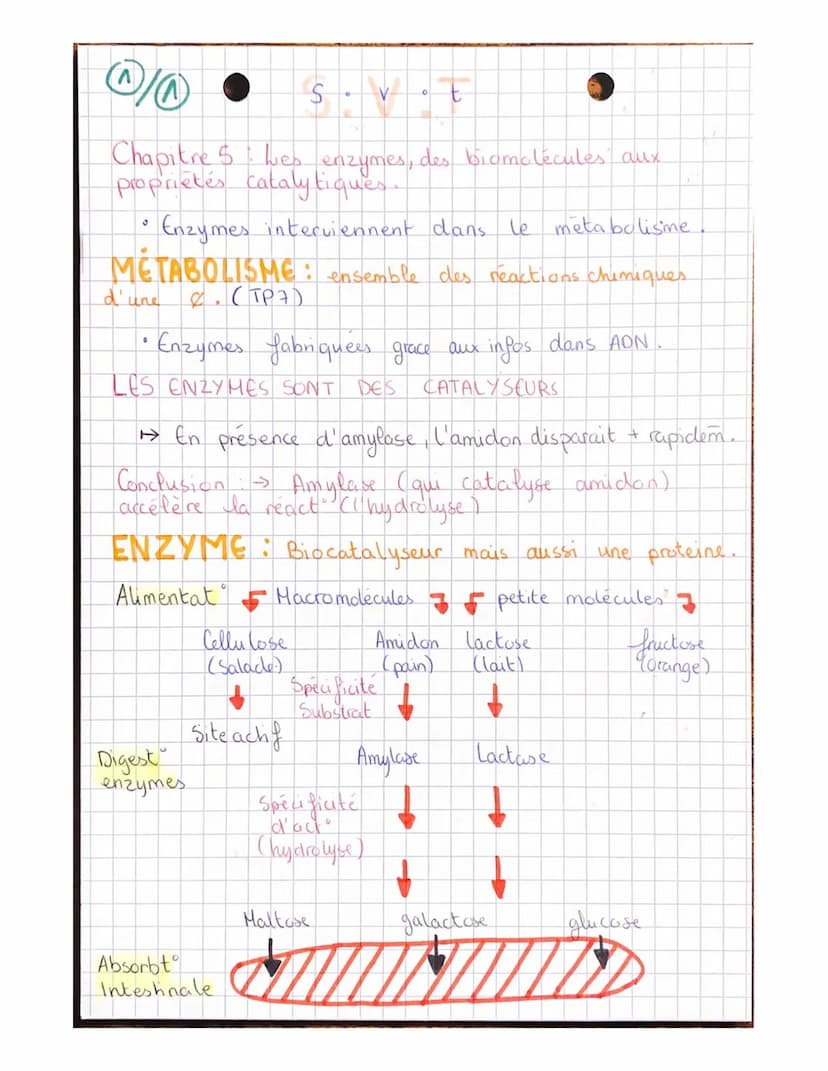 1/1
S.V.T
Chapitre 5 : Les enzymes, des biomolécules aux
propriétés catalytiques.
• Enzymes interviennent dans le métabolisme.
MÉTABOLISME : ensemble des réactions chimiques
d'une ¢. (TP7)
• Enzymes fabriquées grace aux infos dans ADN.
LES ENZYMES SONT DES CATALYSEURS
↦ En présence d'amylase, l'amidon disparait + rapidem̄.
Conclusion : → Amylase (qui catalyse amidon)
accélère la réact° (l'hydrolyse)
ENZYME : Biocatalyseur mais aussi une proteine.
Alimentat° Macromolécules petite molécules
Cellulose Amidon lactose fructose
(Salade) (pain) (lait) (orange)
Spécificité
Substrat
Site actif
Digest° Amylase Lactase
enzymes
Spécificité
d'act°
(hydrolyse)
Maltose galactose glucose
Absorbt°
Intestinale